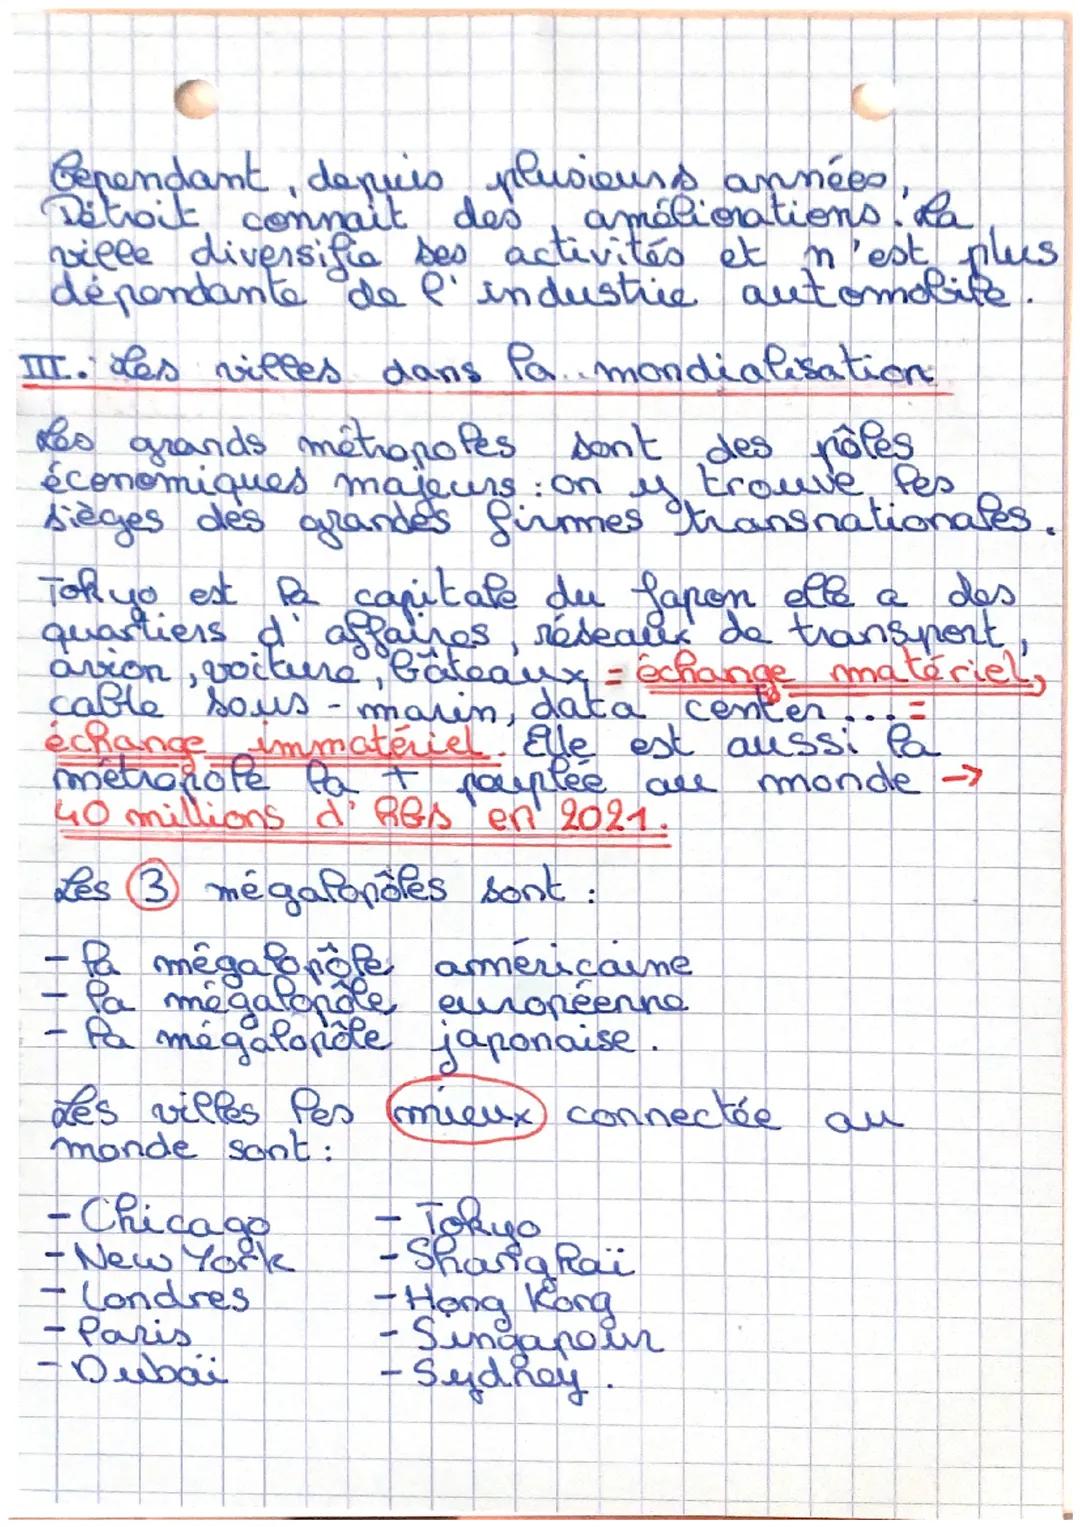 Cependant, depuis plusieurs années,
Détroit connait des améliorations. La
ville diversifie ses activités et n'est plus
dépendante de l'industrie automobile.
III.: Les villes dans la mondialisation
Les grands métropoles sont des pôles
économiques majeurs : on y trouve les
sièges des grandes firmes transnationales.
Tokyo est la capitale du Japon elle a des
quartiers d'affaires, réseaux de transport,
avion, voiture, bâteaux = échange matériel,
cable sous-marin, data center... =
échange immatériel. Elle est aussi la
métropole la + peuplée au monde →
40 millions d'hbts en 2021.
Les 3 mégalopôles sont :
- la mégalopôle américaine
- la mégalopôle européenne
- la mégalopôle japonaise.
Les villes les mieux connectée au
monde sont :
- Chicago
- New York
- Londres
- Paris
- Dubaï
- Tokyo
- Shanghaï
- Hong Kong
- Singapour
- Sydney.